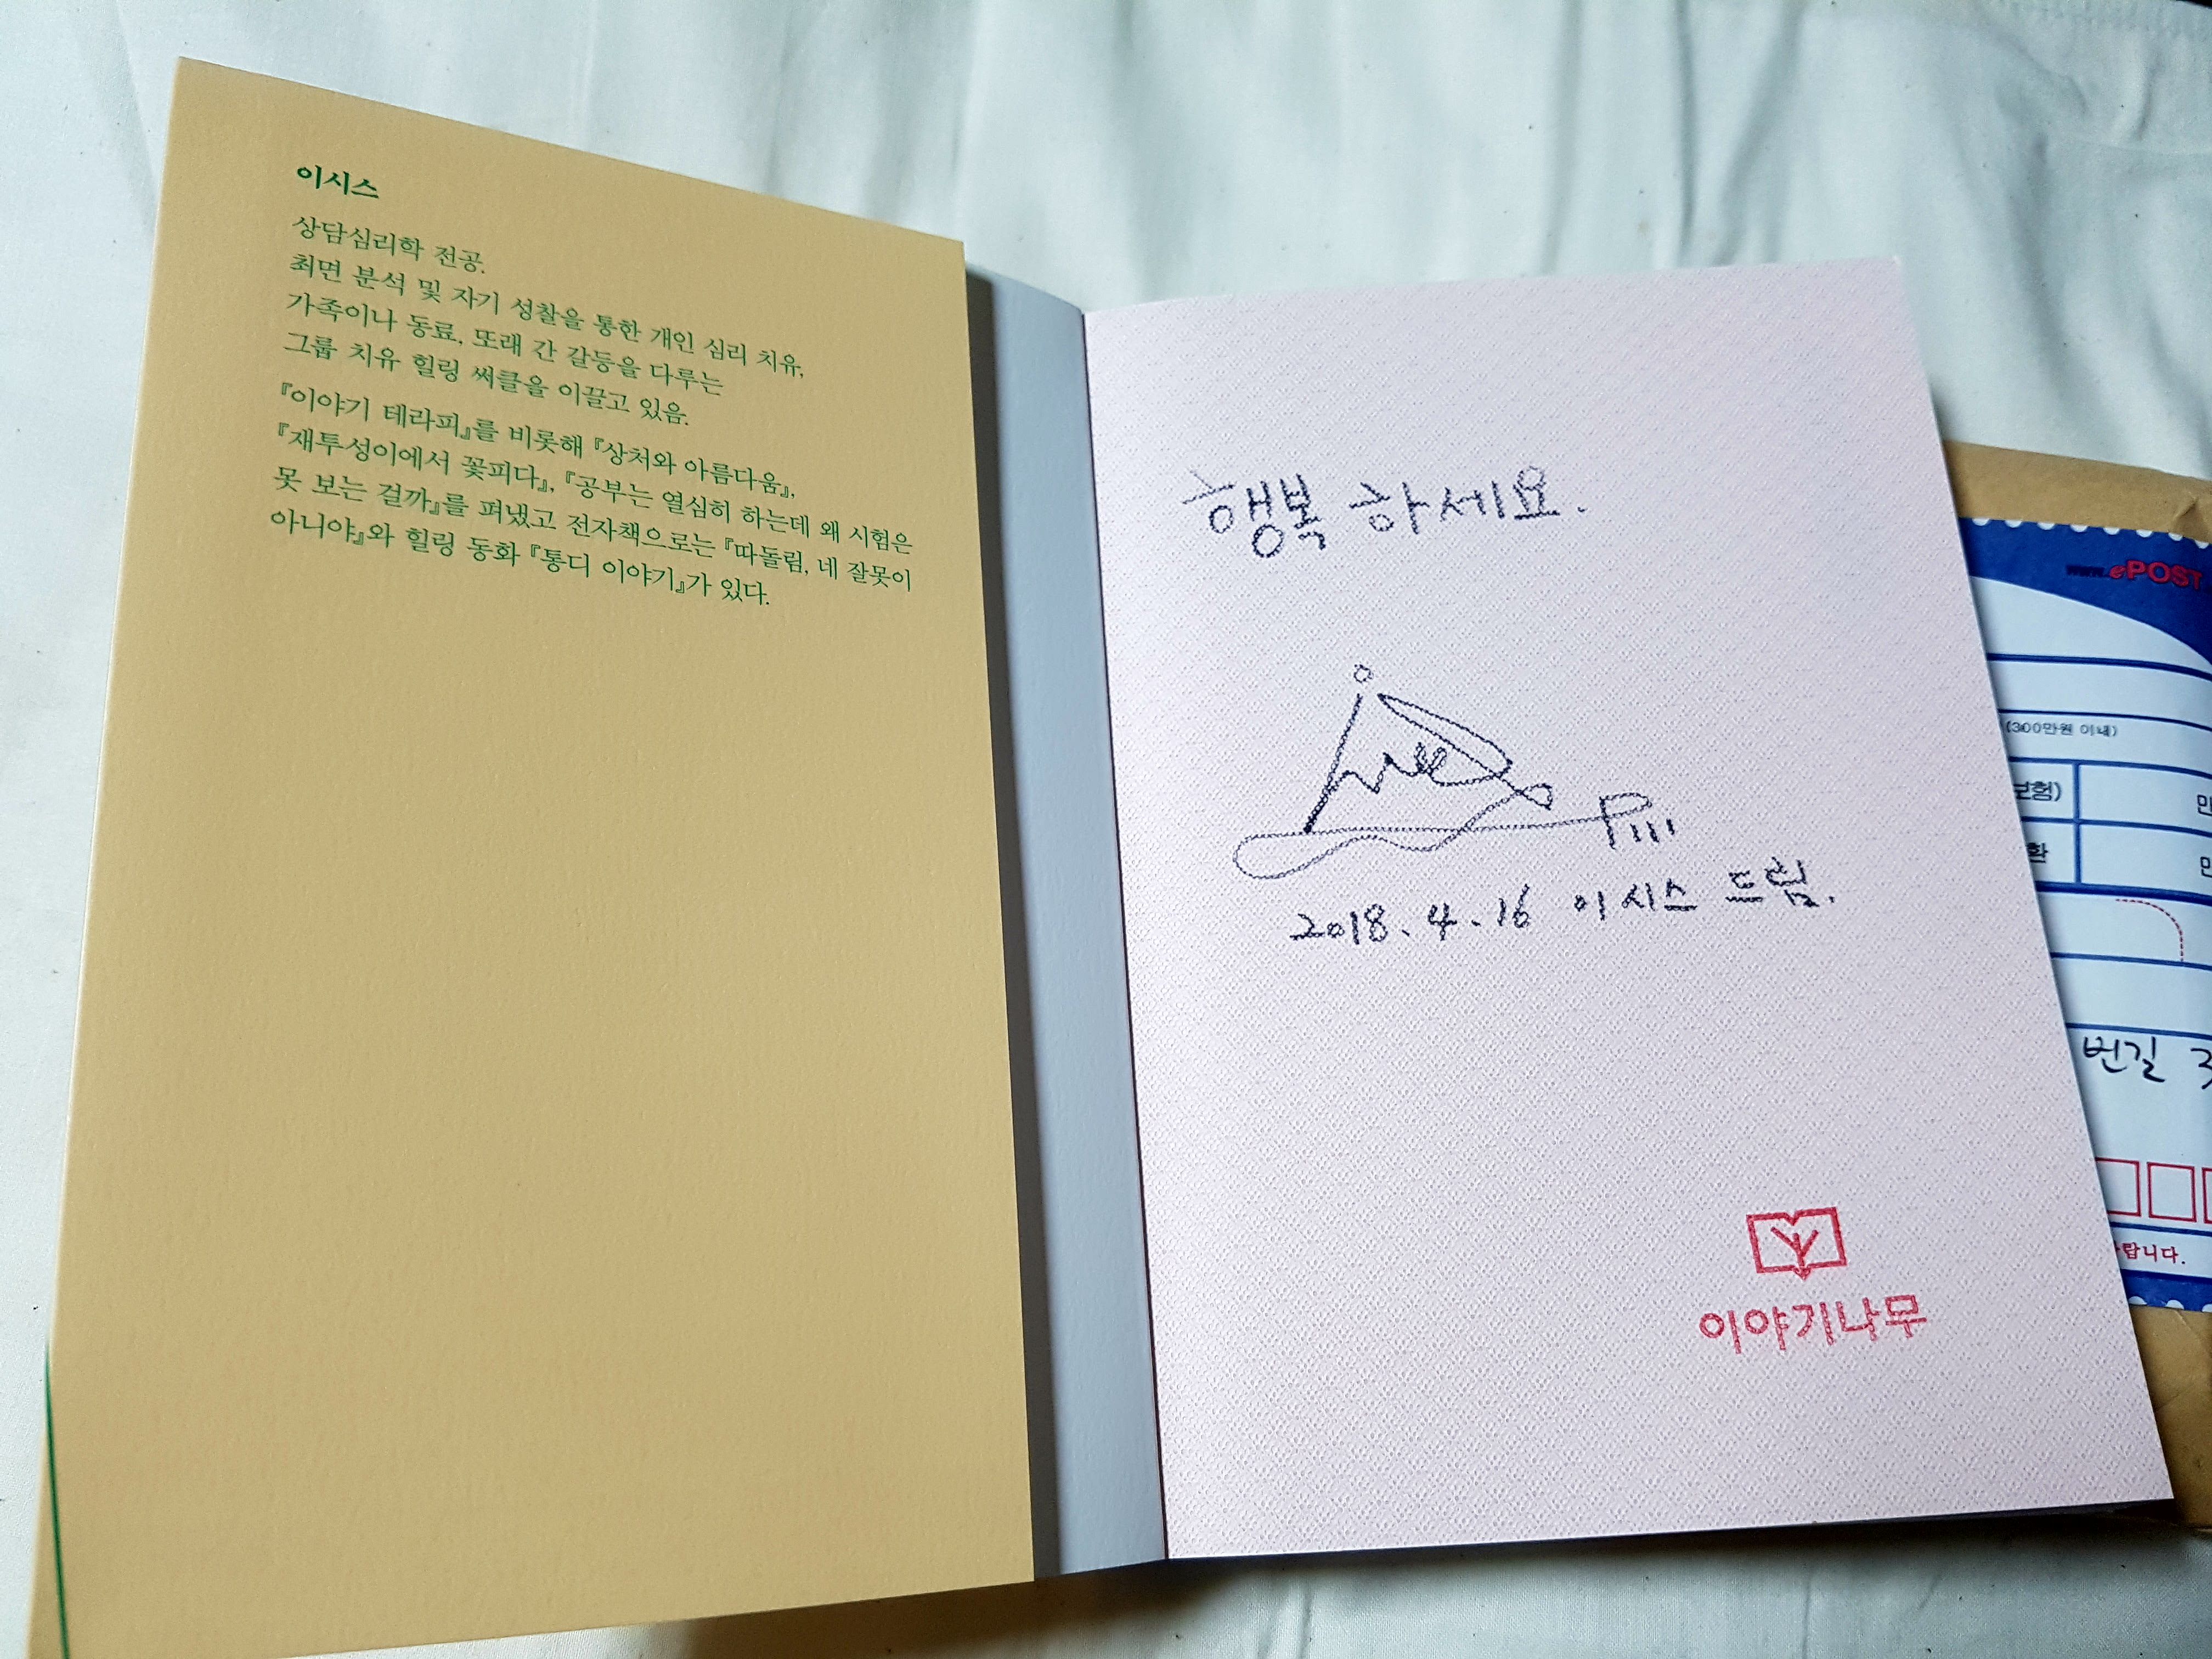 이시스
상담심리학 전공.
최면 분석 및 자기 성찰을 통한 개인 심리 치유,
가족이나 동료, 또래 간 갈등을 다루는
그룹 치유 힐링 써클을 이끌고 있음.
『이야기 테라피』를 비롯해 『상처와 아름다움』,
『재투성이에서 꽃피다』, 『공부는 열심히 하는데 왜 시험은
못 보는 걸까』를 펴냈고 전자책으로는 『따돌림, 네 잘못이
아니야』와 힐링 동화 『통디 이야기』가 있다.
행복 하세요.
2018. 4. 16 이시스 드림.
이야기나무
www.ePOST
(300만원 이내)
보험)
환
번길
랍니다.